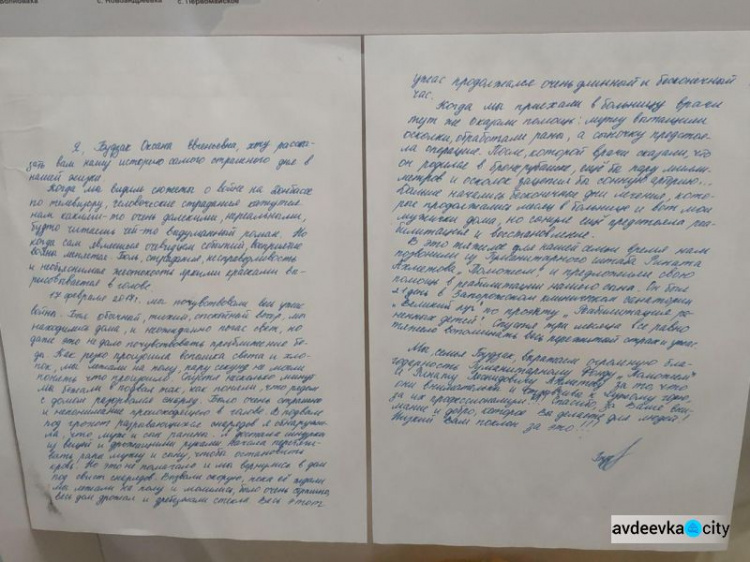 с. Новоандреевка
с. Первомайское
Я, Буздак Оксана Евгеньевна, хочу расска-
зать вам нашу историю самого страшного дня в
нашей жизни.
Когда мы видим сюжеты о войне на Донбассе
по телевизору, человеческие страдания кажутся
нам какими-то очень далекими, нереальными,
будто читаешь чей-то выдуманный роман. Но
когда сам являешься очевидцем событий, восприятие
войны меняется. Боль, страдания, несправедливость
и необъяснимая жестокость яркими красками вы-
рисовываются в голове.
17 февраля 2017г. мы почувствовали весь ужас
войны. Был обычный, тихий, спокойный вечер, мы
находились дома, и неожиданно погас свет, но
даже это не дало почувствовать приближение бе-
ды. Как резко произошла вспышка света и хло-
пок, мы лежали на полу, пару секунд не могли
понять что произошло. Спустя несколько минут
мы бежали в подвал так как поняли, что рядом
с домом разорвался снаряд. Было очень страшно
и непонимание происходящего в голове. В подвале
под грохот разрывающихся снарядов я обнаружи-
ла, что муж и сын ранены. Я доставала
из вещей и дрожащими руками начала перевязы-
вать раны мужу и сыну, чтобы остановить
кровь. Но это не помогало и мы вернулись в дом
под свист снарядов. Вызвали скорую, пока её ждали
мы лежали на полу и молились, было очень страшно,
весь дом дрожал и дребезжали стекла. Весь этот
ужас продолжался очень длинный и бесконечный
час.
Когда мы приехали в больницу врачи
тут же оказали помощь: мужу вытащили
осколки, обработали раны, а сыночку предстоя-
ла операция. После, которой врачи сказали, что
он родился в брачерубашке, ещё бы пару милли-
метров и осколок зацепил бы сонную артерию...
Дальше начались бесконечные дни лечения, кото-
рые продолжались месяц в больнице и вот, мои
мужички дома, но сыночке ещё предстояла реа-
билитация и восстановление.
В это тяжелое для нашей семьи время нам
позвонили из Гуманитарного штаба Рината
Ахметова „Поможем" и предложили свою
помощь в реабилитации нашего сына. Он был
21 день в Запорожском клиническом санатории
„Великий Луг" по проекту „Реабилитация ра-
ненных детей". Спустя три месяца все равно
тяжело вспоминать весь пережитый страх и ужас
Мы, семья Буздак, выражаем огромную бла-
годарность Гуманитарному Фонду „Поможем"
и Ринату Леонидовичу Ахметову за то, что
они внимательны и к чужому горю,
за их профессионализм! Спасибо, за Ваше вни-
мание и добро, которое Вы делаете для людей!
Низкий Вам поклон за это!!!
avdeevka city